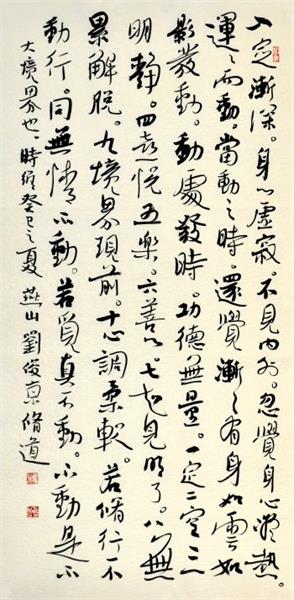 入定漸深。身心虛寂。不見內外。忽覺身心凝然。
運々而動。當動之時。還覺漸々有身如雲如
影發動。動處發時。功德無量。一定二空三
明靜。四喜悅五樂。六善心。七知見明了。八無
累解脫。九境界現前。十心調柔軟。若脩行不
動行。同無情不動。若覓真不動。不動是不
大境界也。時維癸巳之夏 燕山劉俊京脩道